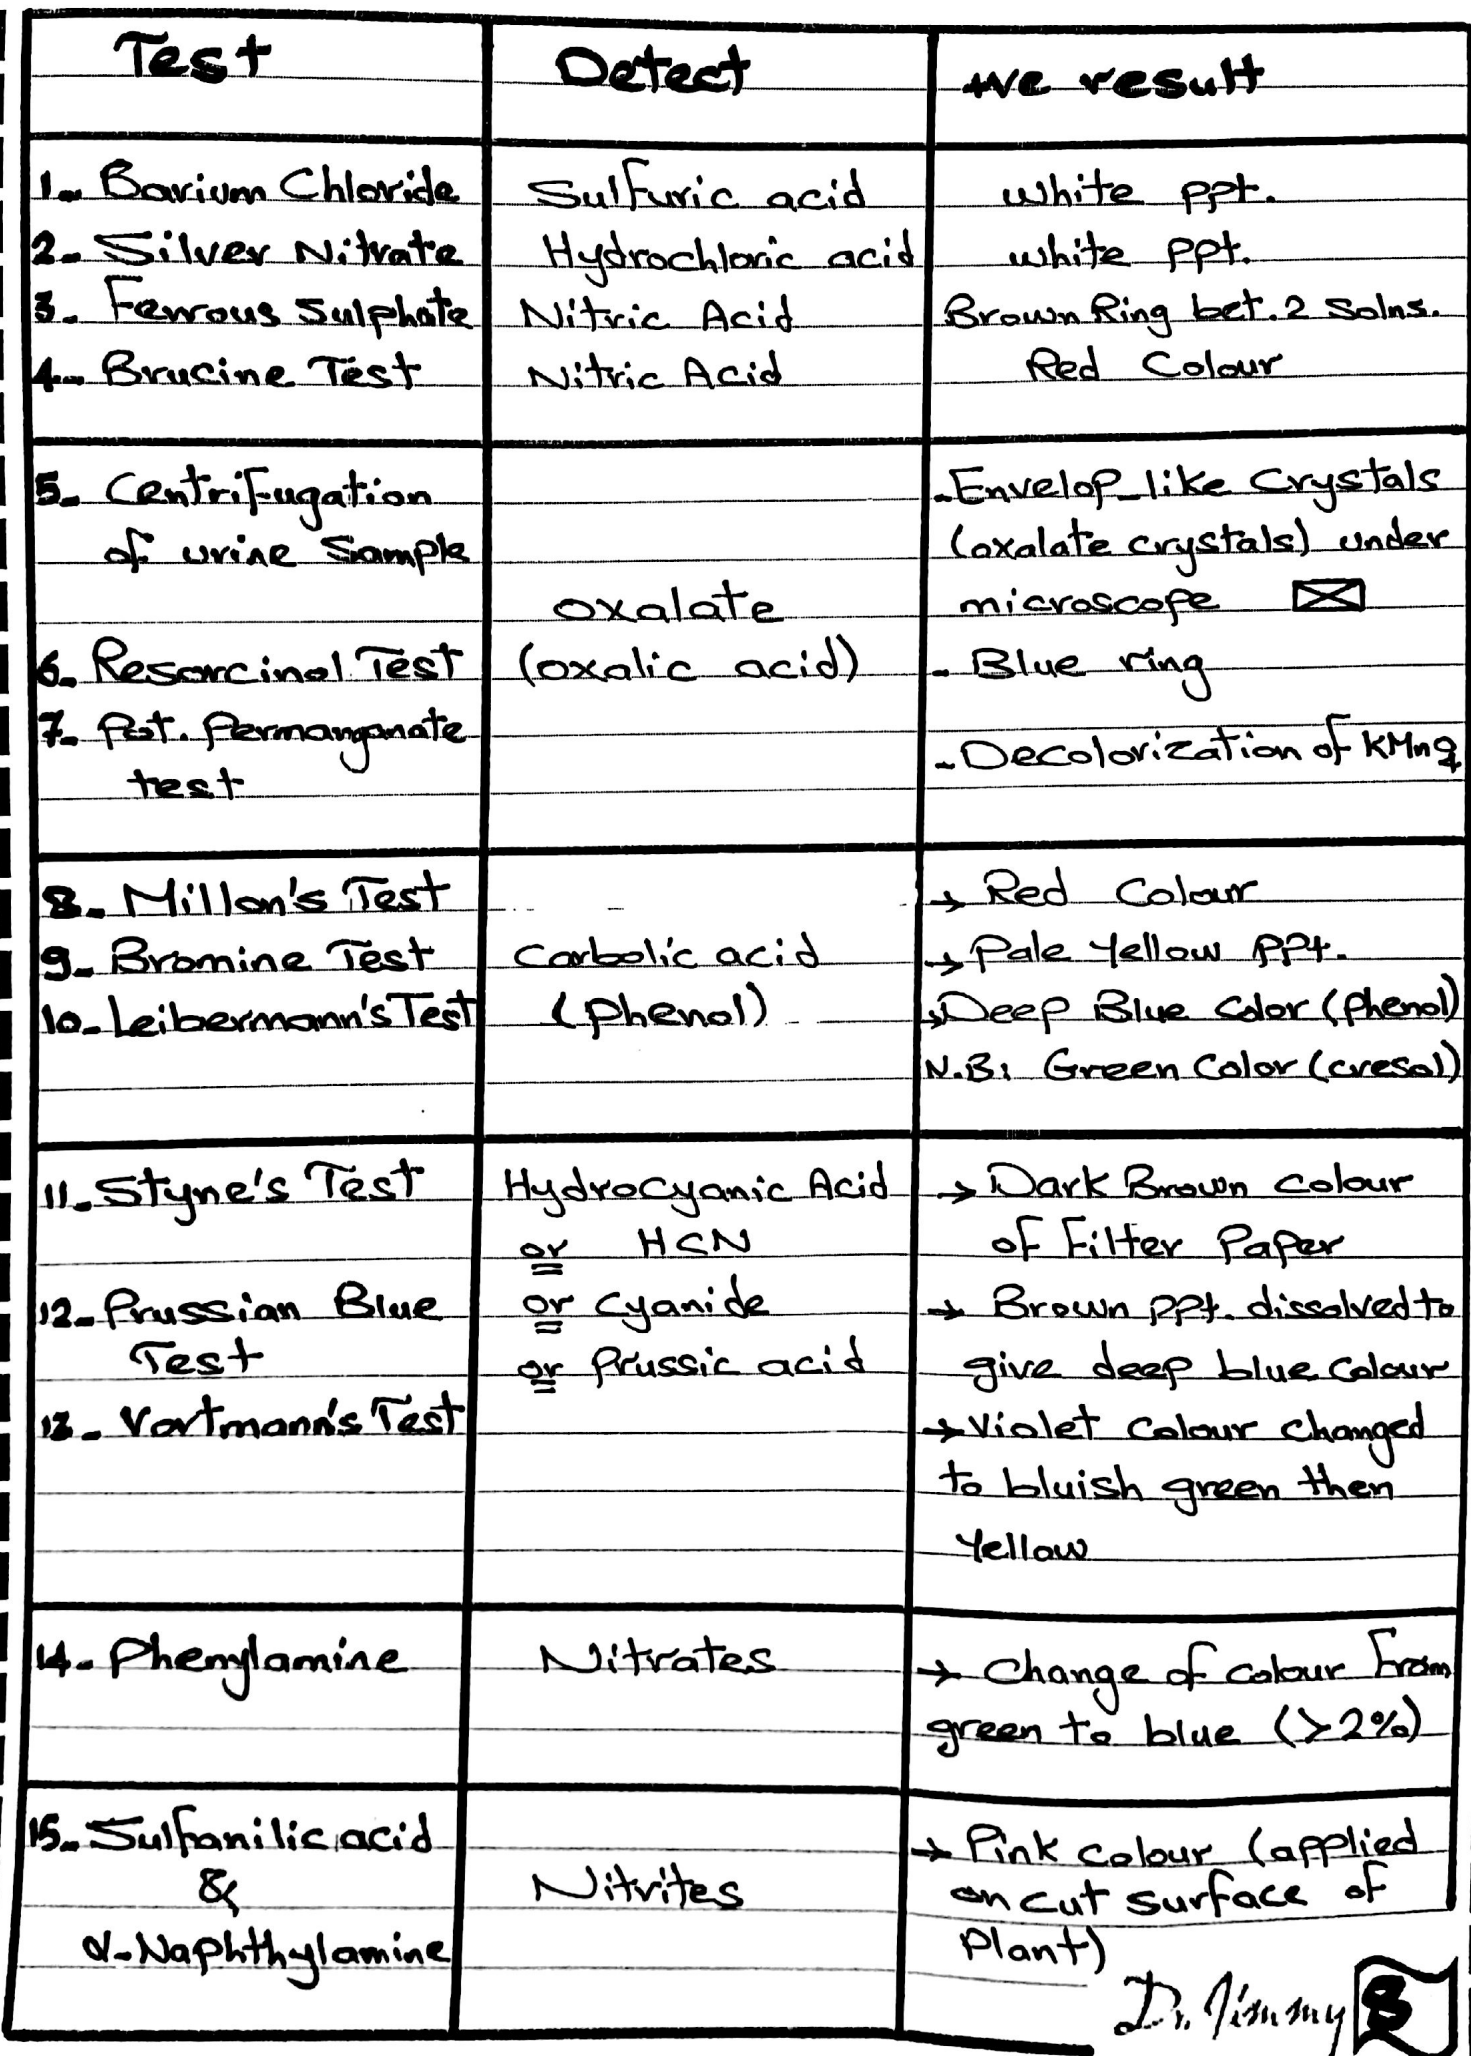 Test Detect +ve result
1- Barium Chloride Sulfuric acid white ppt.
2- Silver Nitrate Hydrochloric acid white ppt.
3- Ferrous Sulphate Nitric Acid Brown Ring bet. 2 Solns.
4- Brucine Test Nitric Acid Red Colour
5- Centrifugation
of urine Sample
oxalate
(oxalic acid)
- Envelop-like Crystals
(oxalate crystals) under
microscope
6- Resorcinol Test - Blue ring
7- Pot. Permanganate
test
- Decolorization of KMnO4
8- Millon's Test → Red Colour
9- Bromine Test Carbolic acid → Pale Yellow ppt.
10- Leibermann's Test (Phenol) → Deep Blue Color (Phenol)
N.B: Green Color (cresol)
11- Styne's Test Hydrocyanic Acid → Dark Brown colour
or HCN of Filter Paper
12- Prussian Blue or Cyanide → Brown ppt. dissolved to
Test or Prussic acid give deep blue Colour
13- Vortmann's Test → Violet Colour changed
to bluish green then
Yellow
14- Phenylamine Nitrates → Change of colour from
green to blue (>2%)
15- Sulfanilic acid → Pink colour (applied
& Nitrites on cut surface of
α-Naphthylamine Plant)
Dr. Jimmy 8